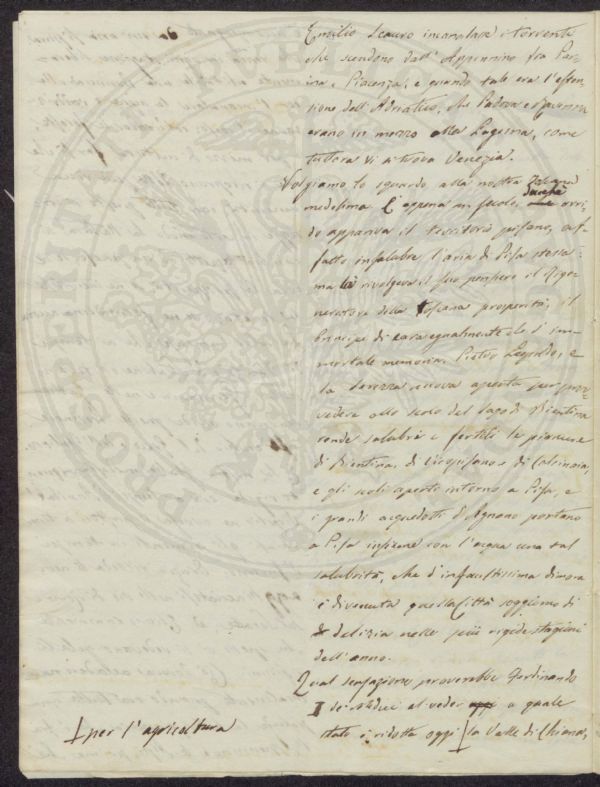 Emilio Scauro incanalare i torrenti
che scendono dall' Appennino fra Par-
ma, e Piacenza; e quando tale era l'esten-
sione dell'Adriatico, che Padova e Ravenna
erano in mezzo alla Laguna, come
tuttora vi si trova Venezia.
Volgiamo lo sguardo alla nostra Toscana
medesima. È appena un secolo, ducchè orri-
do appariva il territorio pisano, af-
fatto insalubre l'aria di Pisa stessa:
ma là rivolgeva il suo pensiero il Rige-
neratore della toscana prosperità, il
Principe di cara egualmente che d' im-
mortale memoria, Pietro Leopoldo, e
la nuova aperta per prov-
vedere allo scolo del Lago di Bientina
rende salubri e fertili le pianure
di Bientina, di Vicopisano e di Calcinaia,
e gli scoli aperti intorno a Pisa, e
i grandi acquedotti d'Agnano portano
a Pisa insieme con l'acqua una tal
salubrità, che d'infaustissima dimora
è divenuta quella Città soggiorno di
delizia nelle più rigide stagioni
dell'anno.
Qual sensazione proverebbe Ferdinando
I dei Medici al veder a quale
stato è ridotta oggi la Valle di Chiana,
per l'agricoltura